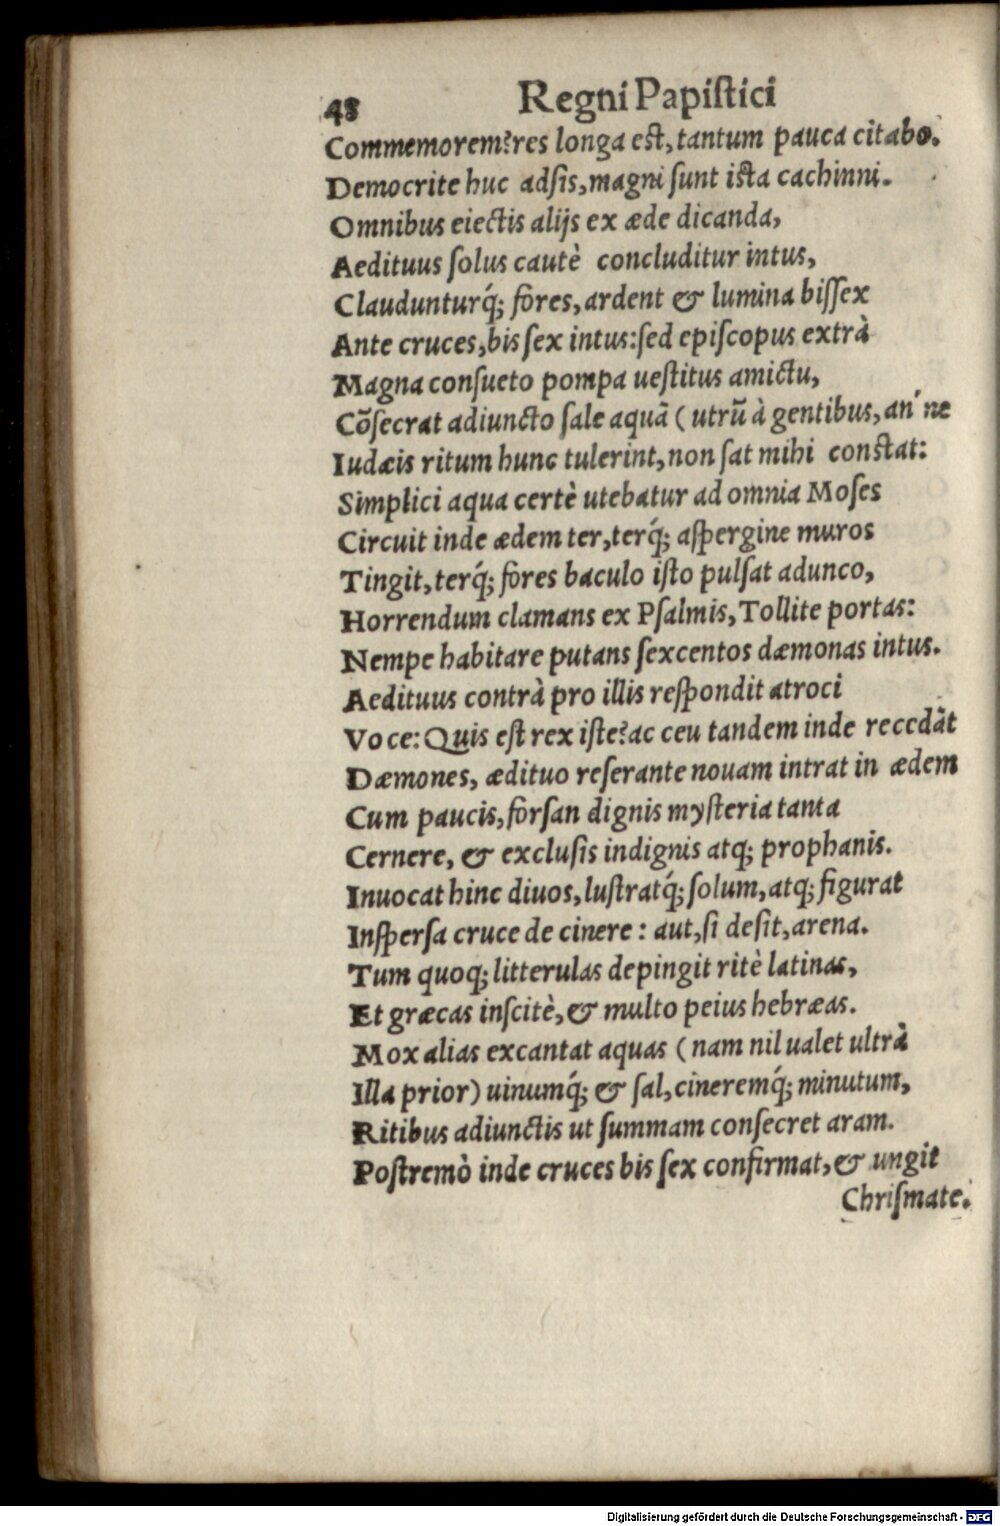 48 Regni Papiſtici
Commemorem?res longa eſt, tantum pauca citabo.
Democrite huc adſis, magni ſunt iſta cachinni.
Omnibus eiectis alijs ex æde dicanda,
Aedituus ſolus cautè concluditur intus,
Claudunturq́; fores, ardent & lumina biſſex
Ante cruces, bis ſex intus: ſed epiſcopus extrà
Magna conſueto pompa ueſtitus amictu,
Cõſecrat adiuncto ſale aquã (utrũ à gentibus, an' ne
Iudæis ritum hunc tulerint, non ſat mihi conſtat:
Simplici aqua certè utebatur ad omnia Moſes
Circuit inde ædem ter, terq́; aſpergine muros
Tingit, terq́; fores baculo iſto pulſat adunco,
Horrendum clamans ex Pſalmis, Tollite portas:
Nempe habitare putans ſexcentos dæmonas intus.
Aedituus contrà pro illis reſpondit atroci
Voce: Quis eſt rex iſte? ac ceu tandem inde recedãt
Dæmones, ædituo reſerante nouam intrat in ædem
Cum paucis, forſan dignis myſteria tanta
Cernere, & excluſis indignis atq; prophanis.
Inuocat hinc diuos, luſtratq́; ſolum, atq; figurat
Inſperſa cruce de cinere : aut, ſi deſit, arena.
Tum quoq; litterulas depingit ritè latinas,
Et græcas inſcitè, & multo peius hebræas.
Mox alias excantat aquas (nam nil ualet ultrà
Illa prior) uinumq́; & ſal, cineremq́; minutum,
Ritibus adiunctis ut ſummam conſecret aram.
Poſtremò inde cruces bis ſex confirmat, & ungit
Chriſmate.
Digitalisierung gefördert durch die Deutsche Forschungsgemeinschaft - DFG